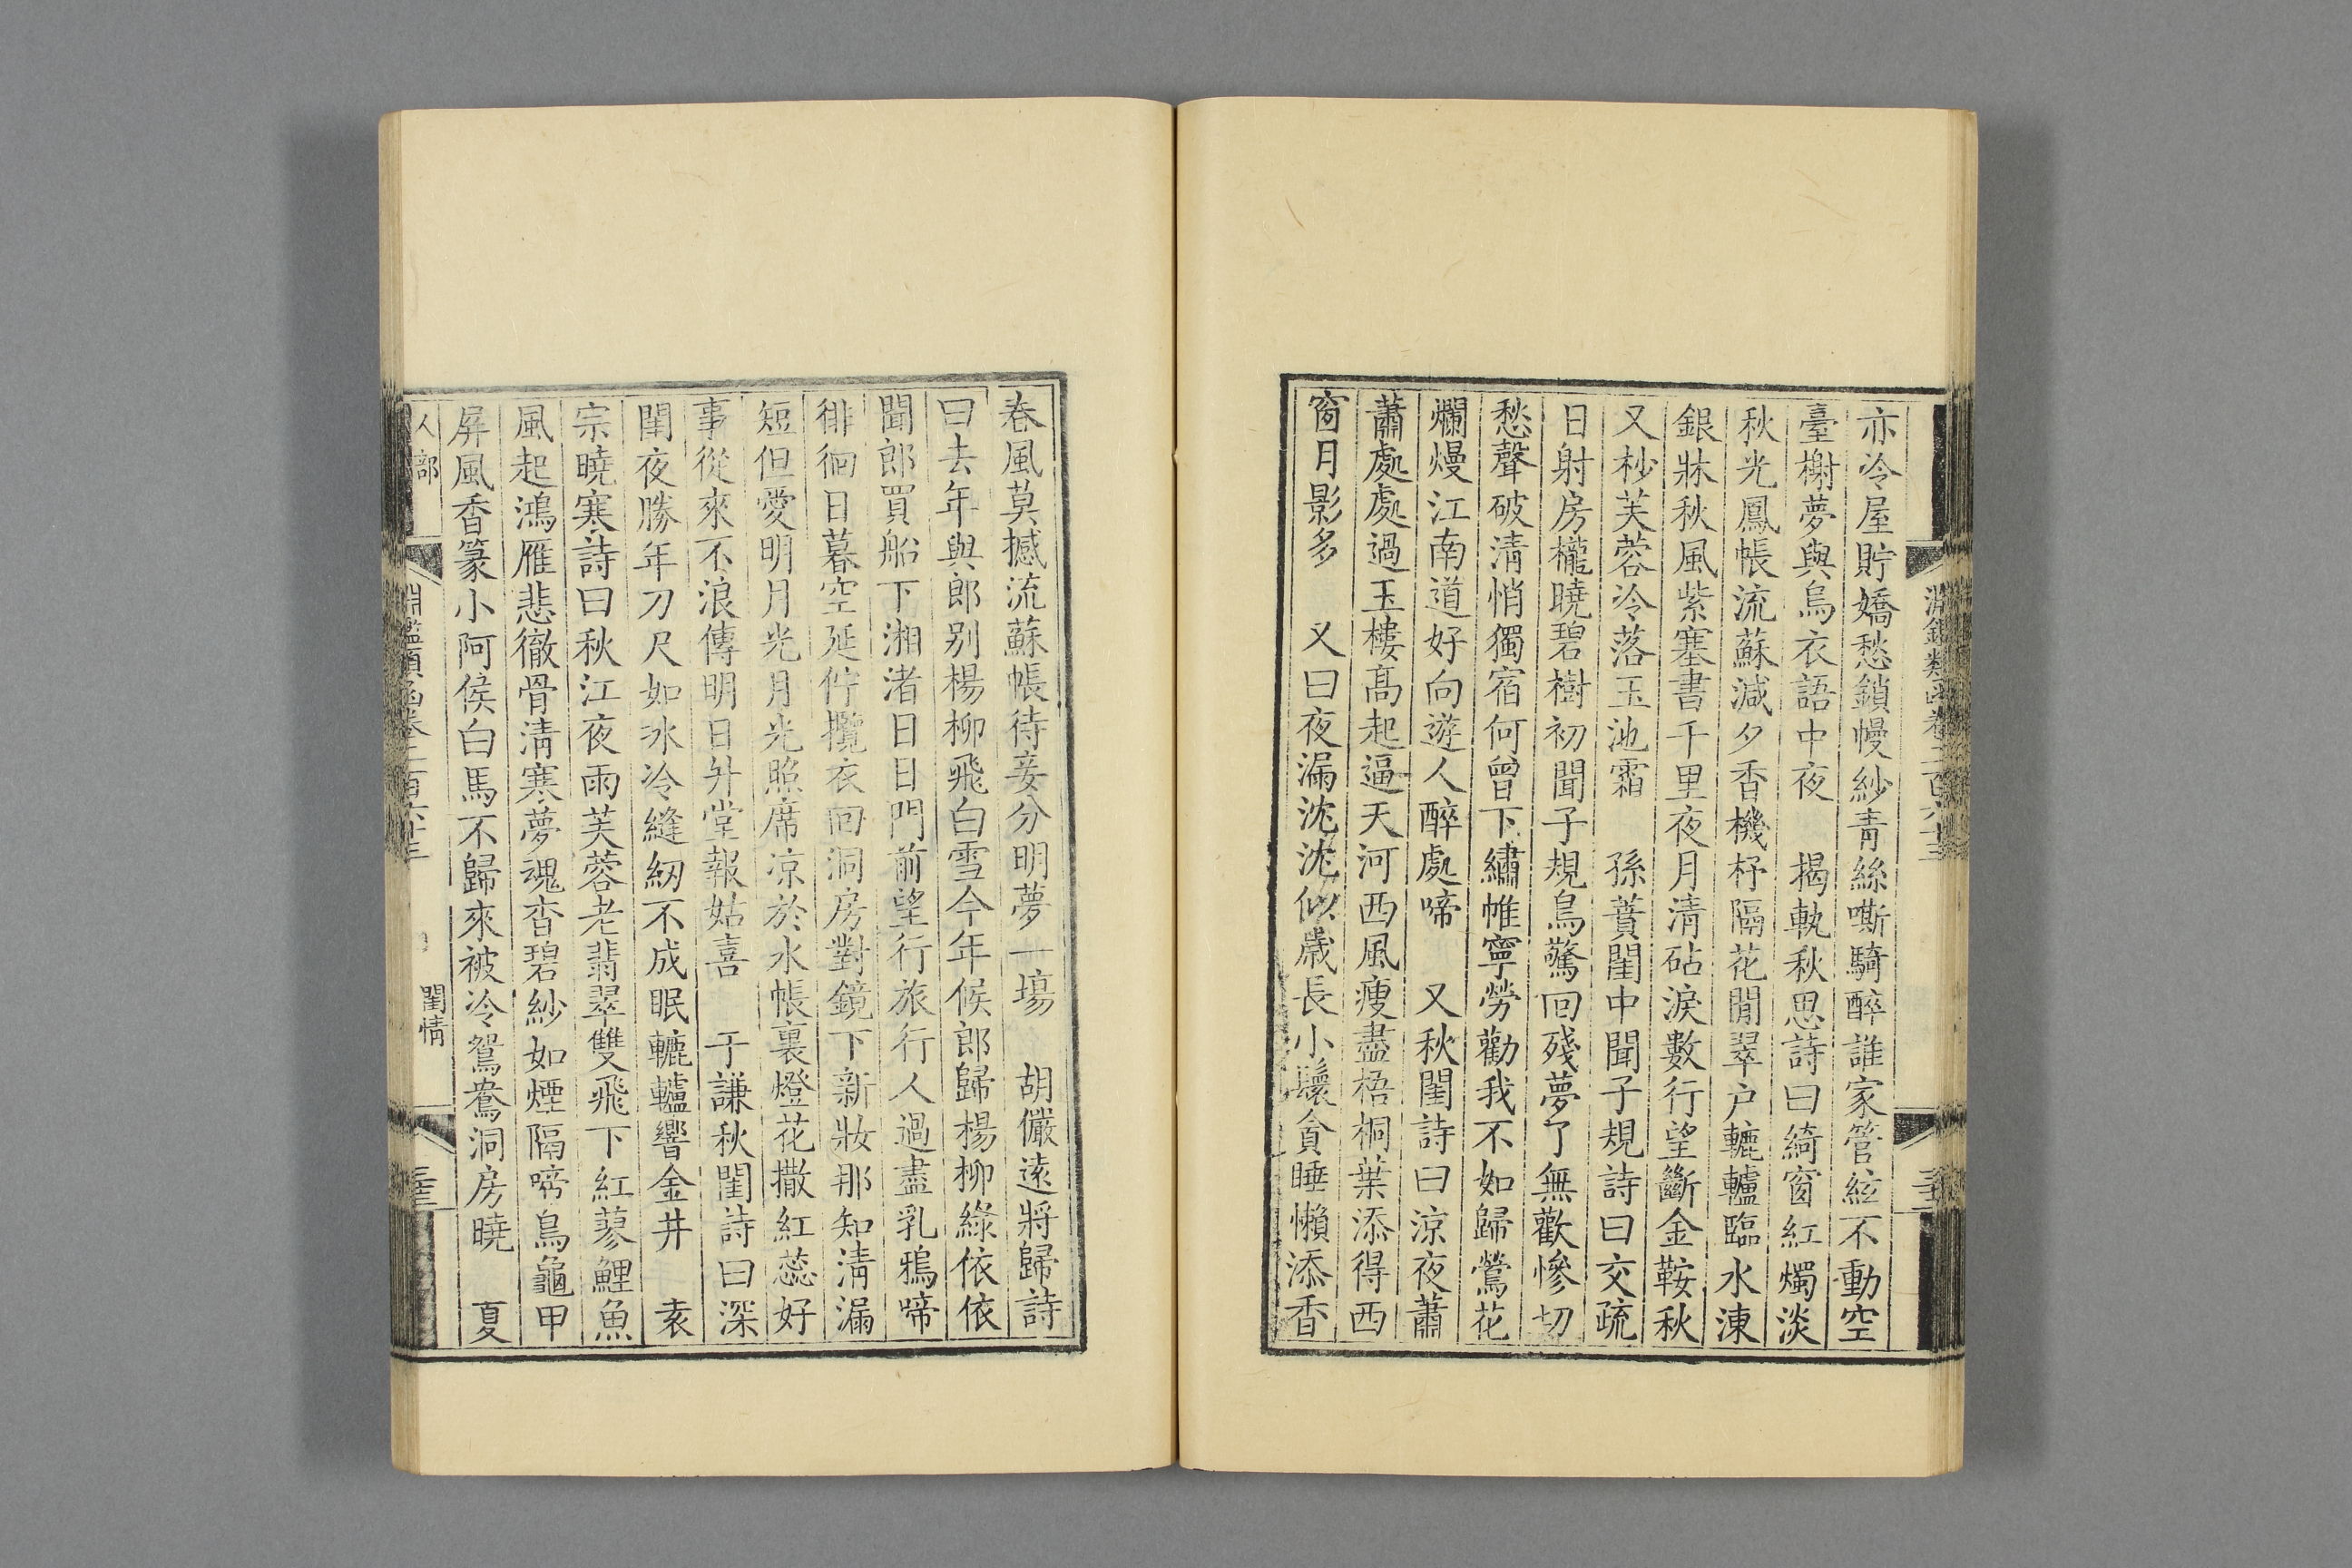 亦冷屋貯嬌愁鎖幔紗青絲嘶騎醉誰家管絃不動空
臺榭夢與烏衣語中夜　揭軌秋思詩曰綺窗紅燭淡
秋光鳳帳流蘇減夕香機杼隔花閒翠户轆轤臨水凍
銀牀秋風紫塞書千里夜月清砧淚數行望斷金鞍秋
又杪芙蓉冷落玉池霜　孫蕡閨中聞子規詩曰交疏
日射房櫳曉碧樹初聞子規鳥驚回殘夢了無歡慘切
愁聲破清悄獨宿何曾下繡帷寧勞勸我不如歸鶯花
爛熳江南道好向遊人醉處啼　又秋閨詩曰涼夜蕭
蕭處處過玉樓高起逼天河西風瘦盡梧桐葉添得西
窗月影多　又曰夜漏沈沈似歲長小鬟貪睡懶添香
春風莫撼流蘇帳待妾分明夢一場　胡儼遠將歸詩
曰去年與郎别楊柳飛白雪今年候郎歸楊柳綠依依
聞郎買船下湘渚日日門前望行旅行人過盡乳鴉啼
徘徊日暮空延佇攬衣回洞房對鏡下新妝那知清漏
短但愛明月光月光照席凉於水帳裏燈花撒紅蕊好
事從來不浪傳明日升堂報姑喜　于謙秋閨詩曰深
閨夜勝年刀尺如冰冷縫紉不成眠轆轤響金井　袁
宗曉寒詩曰秋江夜雨芙蓉老翡翠雙飛下紅蓼鯉魚
風起鴻雁悲徹骨清寒夢魂杳碧紗如煙隔啼鳥龜甲
屏風香篆小阿侯白馬不歸來被冷鴛鴦洞房曉　夏
人部
淵鑑類函卷二百六十三
閨情